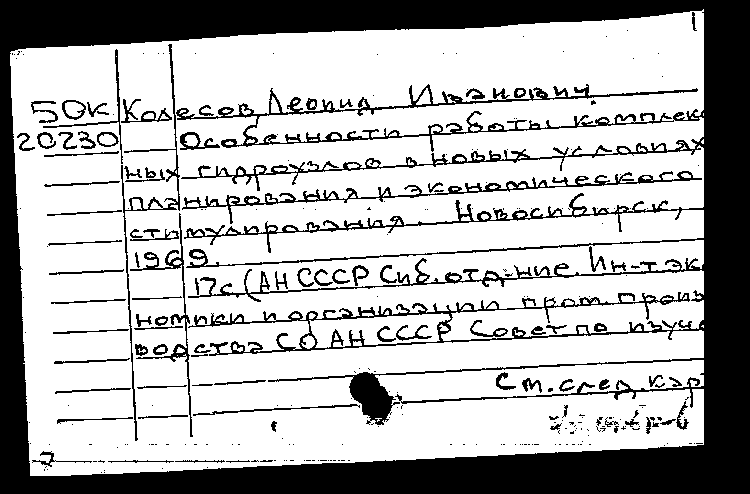 50К Колесов, Леонид Иванович.
20230 Особенности работы комплекс
ных гидроузлов в новых условиях
планирования и экономического
стимулирования. Новосибирск,
1969.
17с. (АН СССР Сиб. отд-ние. Ин-т эко
номики и организации пром. произ
водства СО АН СССР Совет по изуче
См. след. кар